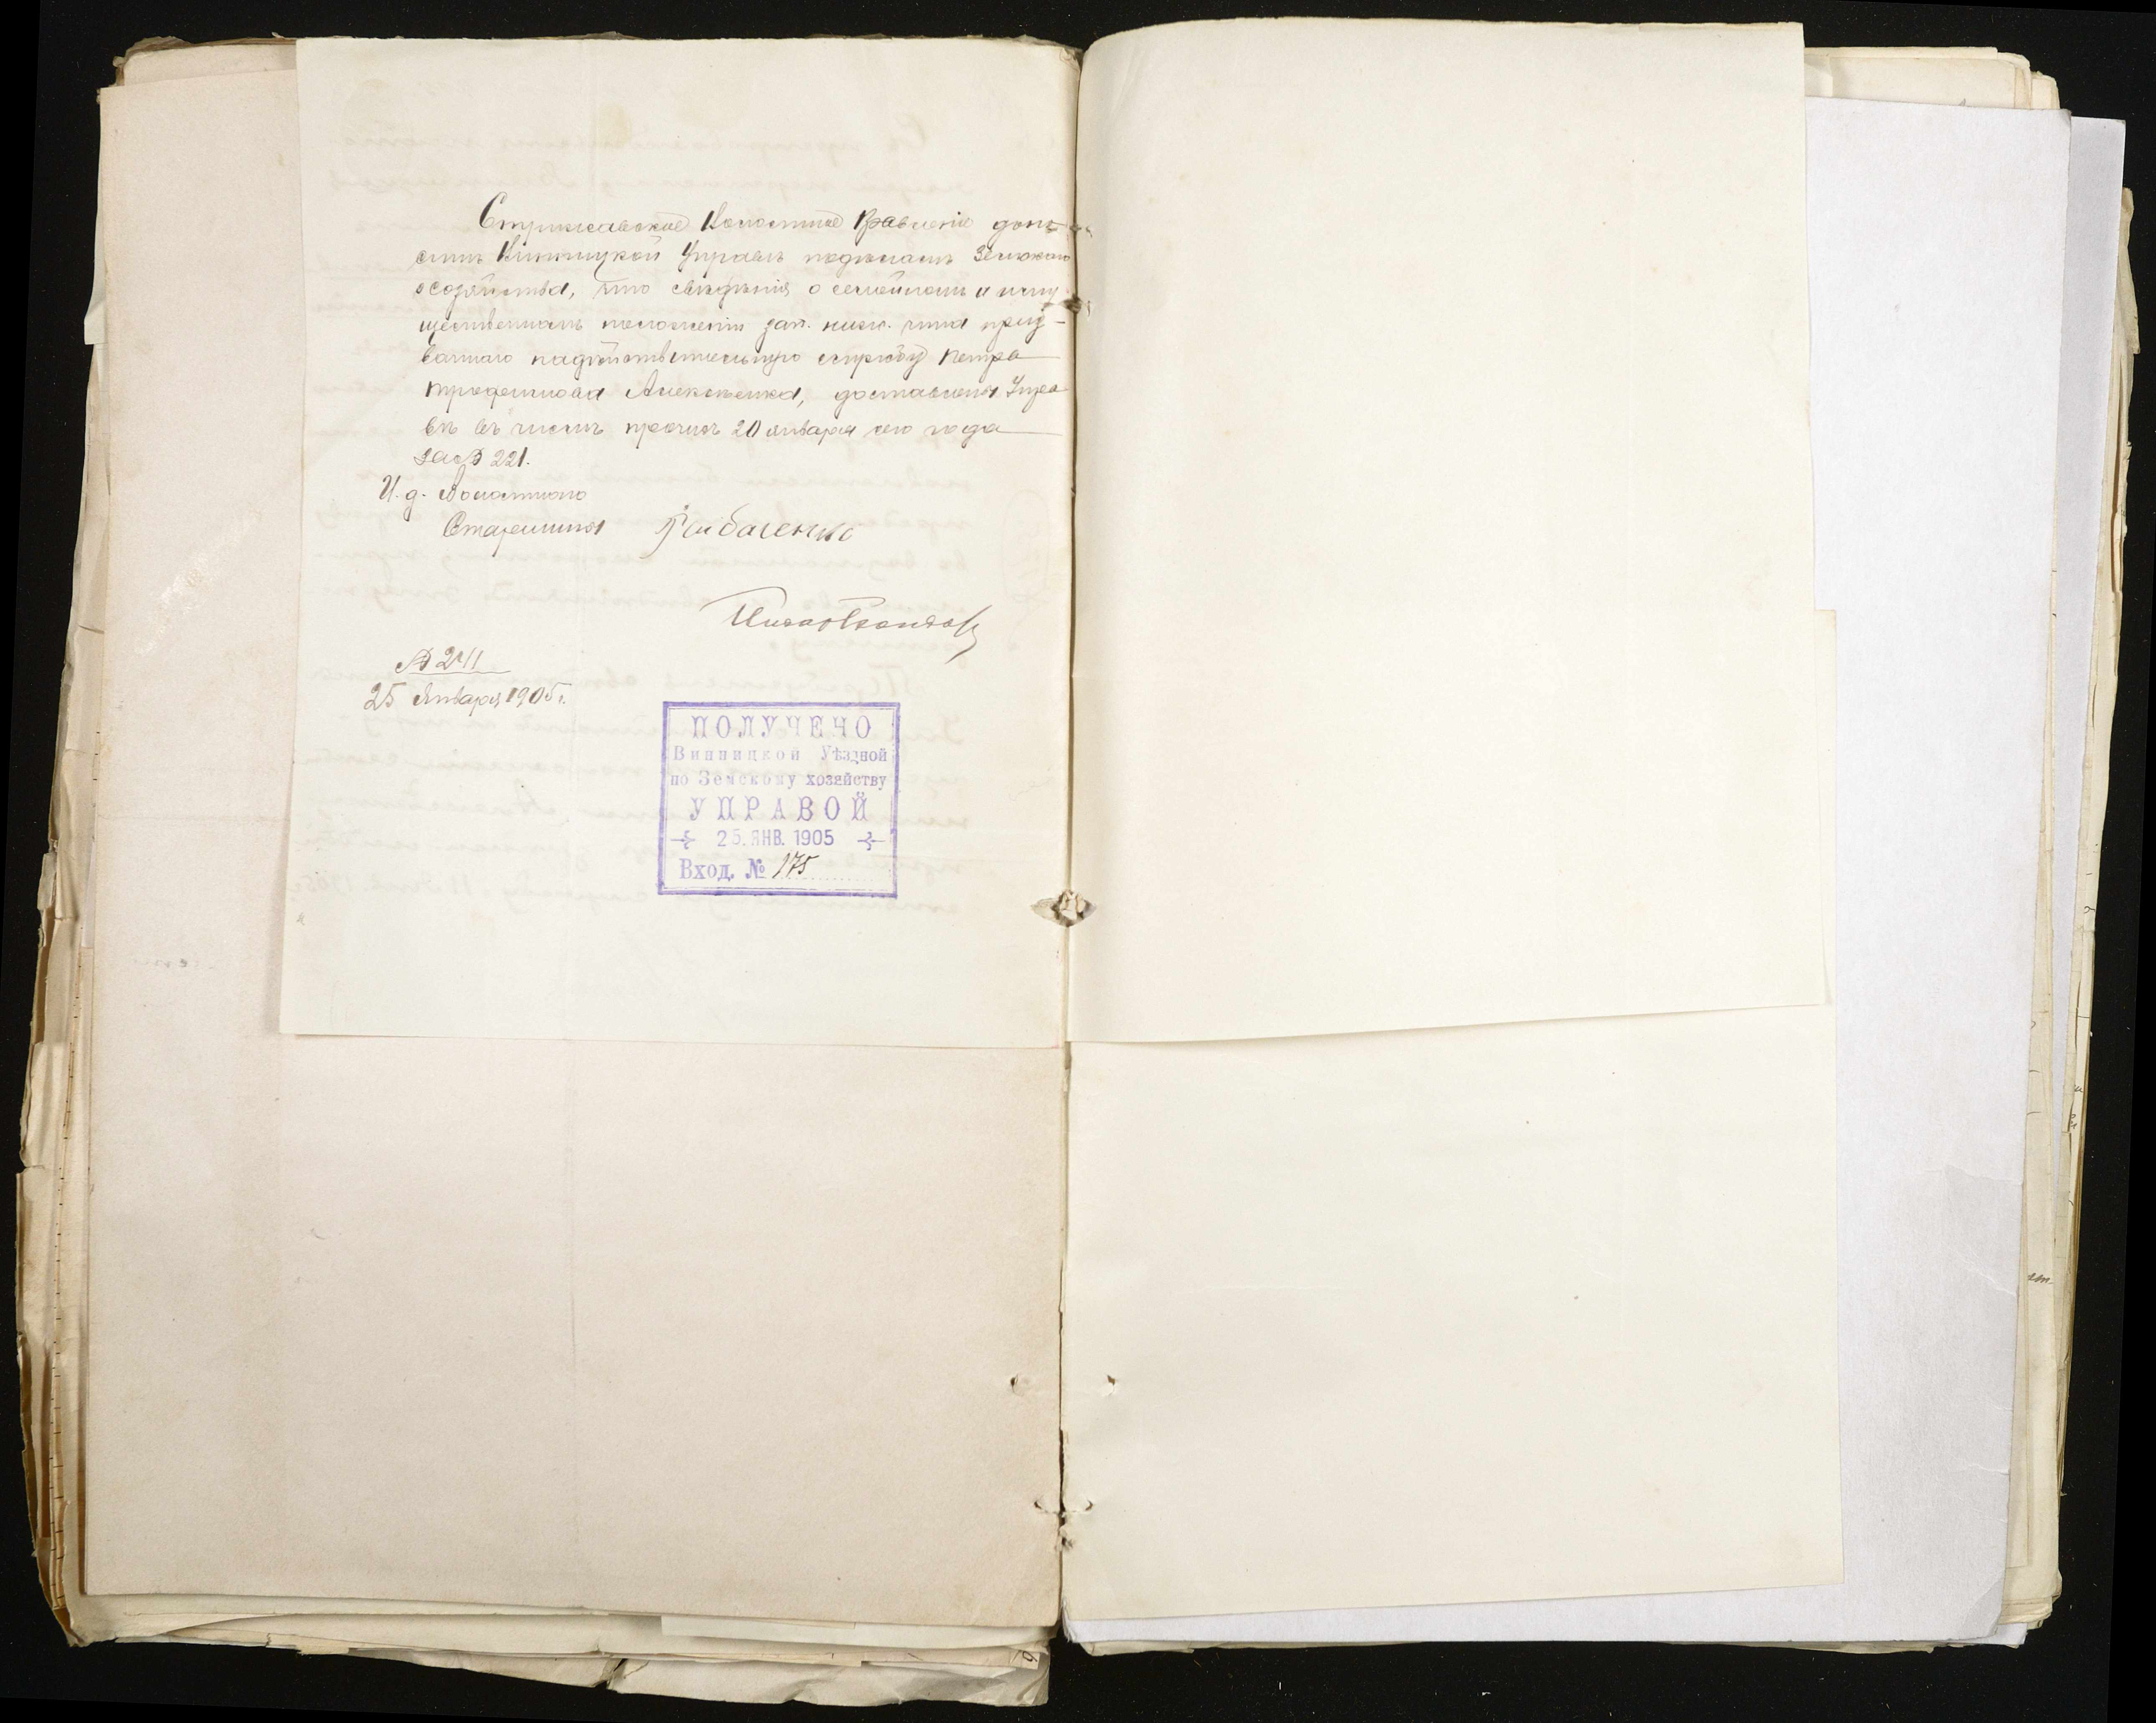 Стрижавское Волостное Правленіе доно
ситъ Винницкой Управѣ по дѣламъ Земскаго
хозяйства, что свѣдѣнія о семейномъ и иму
щественномъ положеніи зап. нижн. чина приз-
ваннаго на дѣйствительную службу Петра
Трофимова Алексѣенка, доставлены Упра
вѣ въ числѣ прочихъ 20 января сего года
за № 221.
И. д. Волостного
Старшины
№ 241
25 Января 1905 г.
ПОЛУЧЕНО
Винницкой Уѣздной
по Земскому хозяйству
УПРАВОЙ
25. ЯНВ. 1905
Вход. № 175